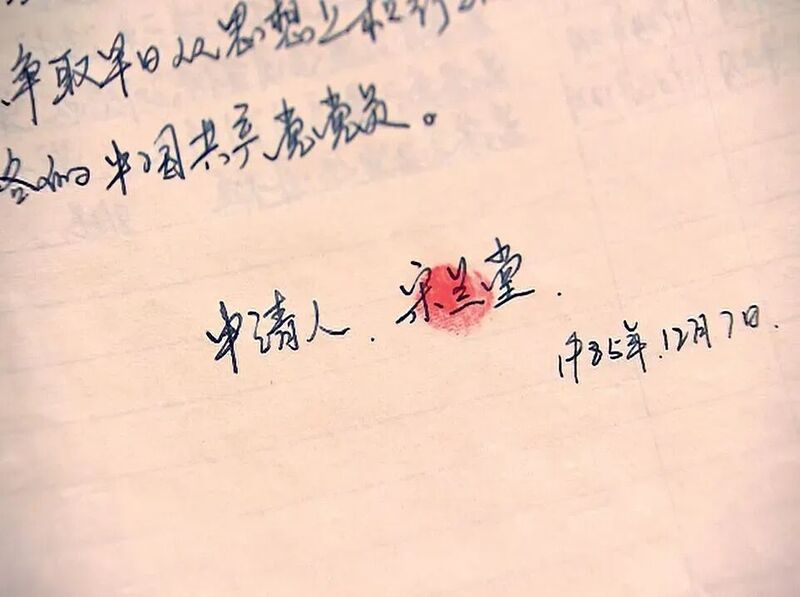 争取早日从思想上和行
各的中国共产党党员。
申请人. 宋兰堂.
1985年.12月7日.